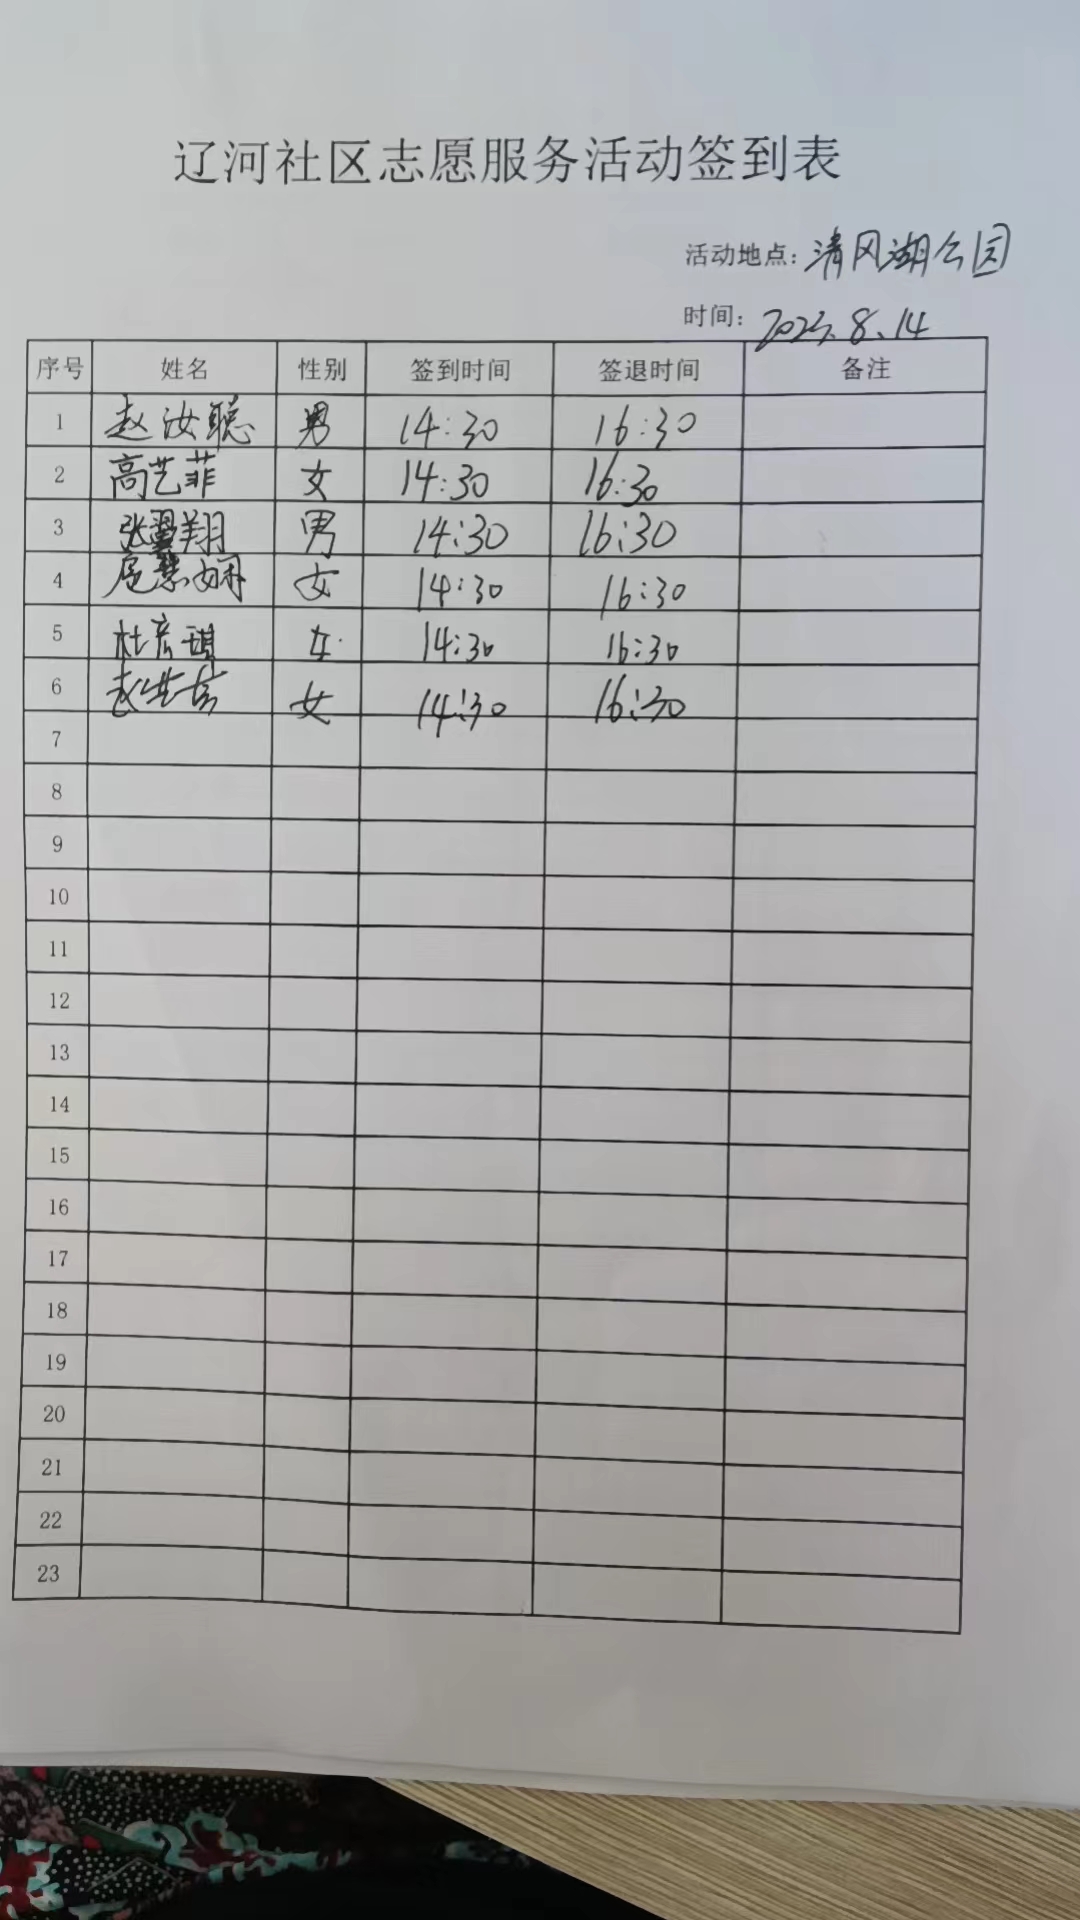 辽河社区志愿服务活动签到表
活动地点：清风湖公园
时间：2023.8.14
序号 姓名 性别 签到时间 签退时间 备注
1 赵汝聪 男 14:30 16:30
2 高艺菲 女 14:30 16:30
3 张翼翔 男 14:30 16:30
4 女 14:30 16:30
5 杜宏琪 女 14:30 16:30
6 赵 女 14:30 16:30
7
8
9
10
11
12
13
14
15
16
17
18
19
20
21
22
23